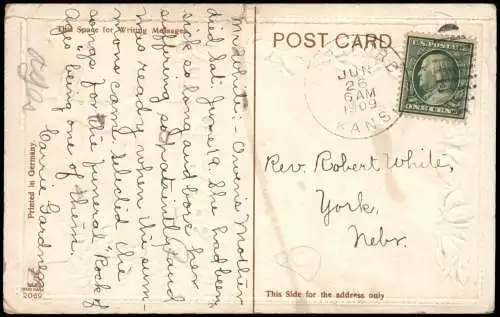 This Space for Writing Messages
Mr. White:- Owen's Mother
died Sat. June 19. She had been
sick so long and bore her
suffering so patiently and
was ready when the sum-
mons came. Selected the
songs for the funeral "Rock of
Ages" being one of them.
Carrie Gardner
Printed in Germany.
2069
POST CARD
JUN
26
6 AM
1909
KANS.
U.S. POSTAGE
ONE CENT
Rev. Robert White,
York,
Nebr.
This Side for the address only